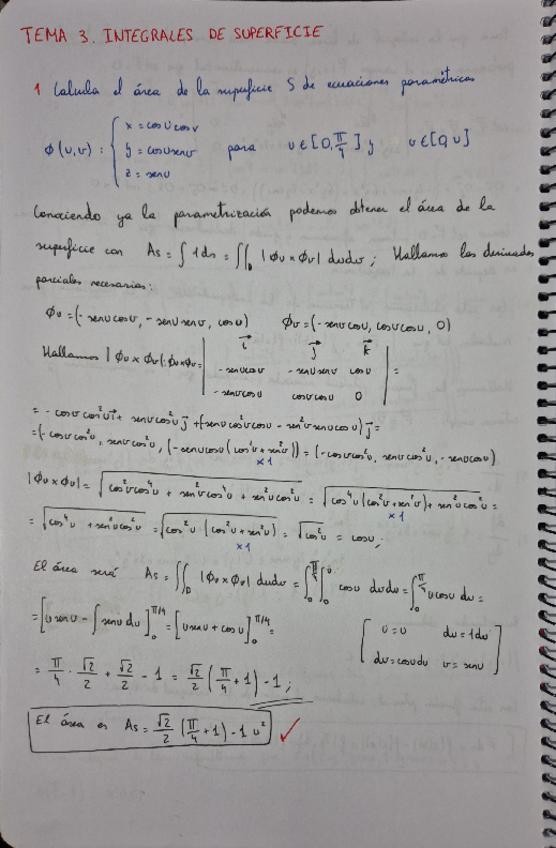 TEMA 3. INTEGRALES DE SUPERFICIE
1 Calcula el área de la superficie S de ecuaciones paramétricas
ϕ(u,v) : { x = cosu cosv
y = cosu senv para u∈[0, π/4] y v∈[0, u]
z = senu
Conociendo ya la parametrización podemos obtener el área de la
superficie con As = ∫ 1ds = ∬_D |ϕu × ϕv| dudv ; Hallamos las derivadas
parciales necesarias:
ϕu = (-senu cosv, -senu senv, cosu) ϕv = (-senv cosu, cosv cosu, 0)
Hallamos |ϕu × ϕv|: ϕu×ϕv = | i j k |
| -senu cosv -senu senv cosu | =
| -senv cosu cosv cosu 0 |
= - cosv cos²u i + senv cos²u j + (-senu cos²v cosu - sen²v senu cosu) j =
= (-cosv cos²u, senv cos²u, (-senu cosu (cos²v + sen²v)) = (-cosv cos²u, senv cos²u, -senu cosu)
×1
|ϕu × ϕv| = √(cos²v cos⁴u + sen²v cos⁴u + sen²u cos²u) = √(cos⁴u (cos²v + sen²v) + sen²u cos²u) =
×1
= √(cos⁴u + sen²u cos²u) = √(cos²u (cos²u + sen²u)) = √(cos²u) = cosu;
×1
El área será As = ∬_D |ϕu × ϕv| dudv = ∫₀^(π/4) ∫₀^u cosu dvdu = ∫₀^(π/4) u cosu du =
= [u senu - ∫ senu du]₀^(π/4) = [u senu + cosu]₀^(π/4) = [ u = u du = 1du
dv = cosu du v = senu ]
= π/4 · √2/2 + √2/2 - 1 = √2/2 (π/4 + 1) - 1 ;
El área es As = √2/2 (π/4 + 1) - 1 u² ✓